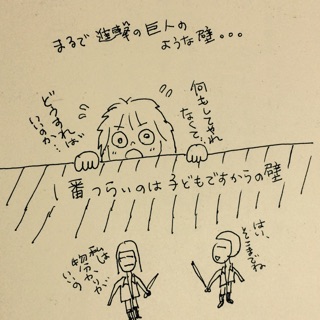 まるで進撃の巨人の
ような壁。。。
何もしてやれ
なくて…
どうすれば
いいのか…
1番つらいのは子どもですからの壁
はい、
そこまでね
私は
物分かりが
いいの